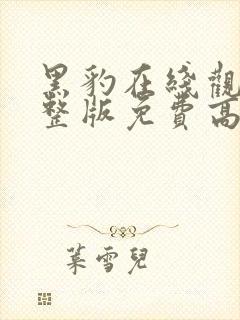 黑豹在綫觀
整版免費高
葉雪兒